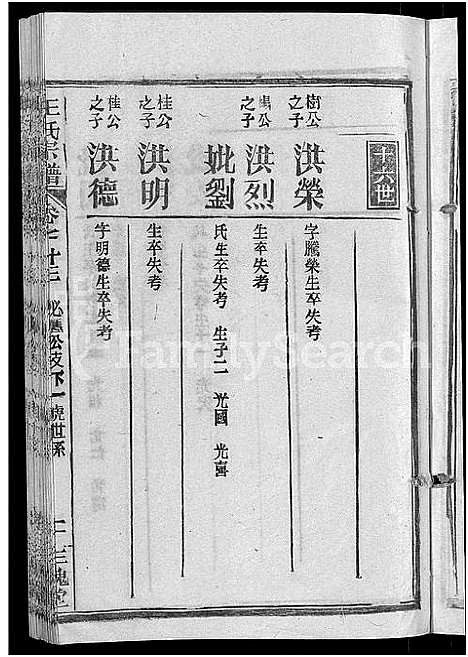 六世
樹公之子 洪榮 字騰榮生卒失考
公之子 洪烈 生卒失考
妣劉 氏生卒失考 生子二 光國 光喜
桂公之子 洪明 生卒失考
桂公之子 洪德 字明德生卒失考
王氏宗譜 公支下 世系 三槐堂
FamilySearch